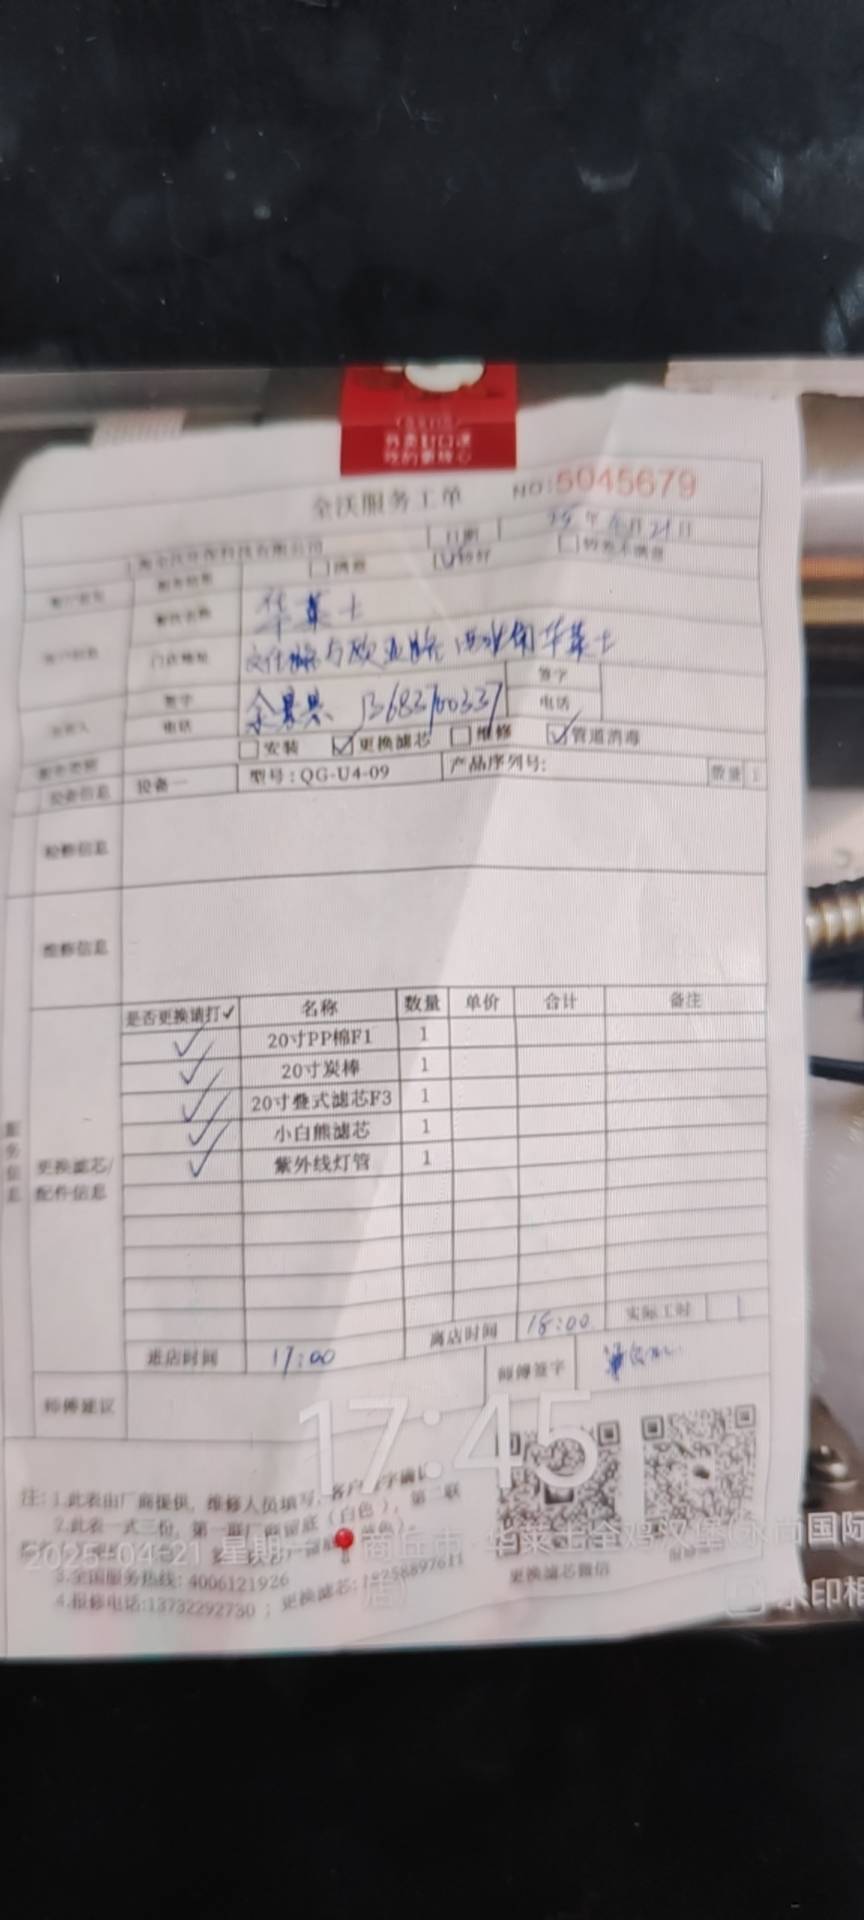 外卖封口过
吃的更放心
全沃服务工单 NO:5045679
日期 25年4月21日
服务结果 满意 较好 较差不满意
餐饮名称 华莱士
门店地址 文化路与欧亚路 华莱士
签字 签字
电话 13683700337 电话
安装 更换滤芯 维修 管道消毒
设备信息 设备一 型号:QG-U4-09 产品序列号: 数量 1
检修信息
维修信息
是否更换请打✓ 名称 数量 单价 合计 备注
✓ 20寸PP棉F1 1
✓ 20寸炭棒 1
✓ 20寸叠式滤芯F3 1
✓ 小白熊滤芯 1
✓ 紫外线灯管 1
服务信息
更换滤芯/
配件信息
进店时间 17:00 离店时间 18:00 实际工时 1
师傅建议 师傅签字
17:45
注:1.此表由厂商提供,维修人员填写,客户签字确认
2.此表一式三份,第一联厂商留底(白色),第二联
2025-04-21 星期一 商丘市·华莱士全鸡汉堡
国际
店)
3.全国服务热线:4006121926
4.报修电话:13732292730;更换滤芯:18258897611
更换滤芯微信
水印相